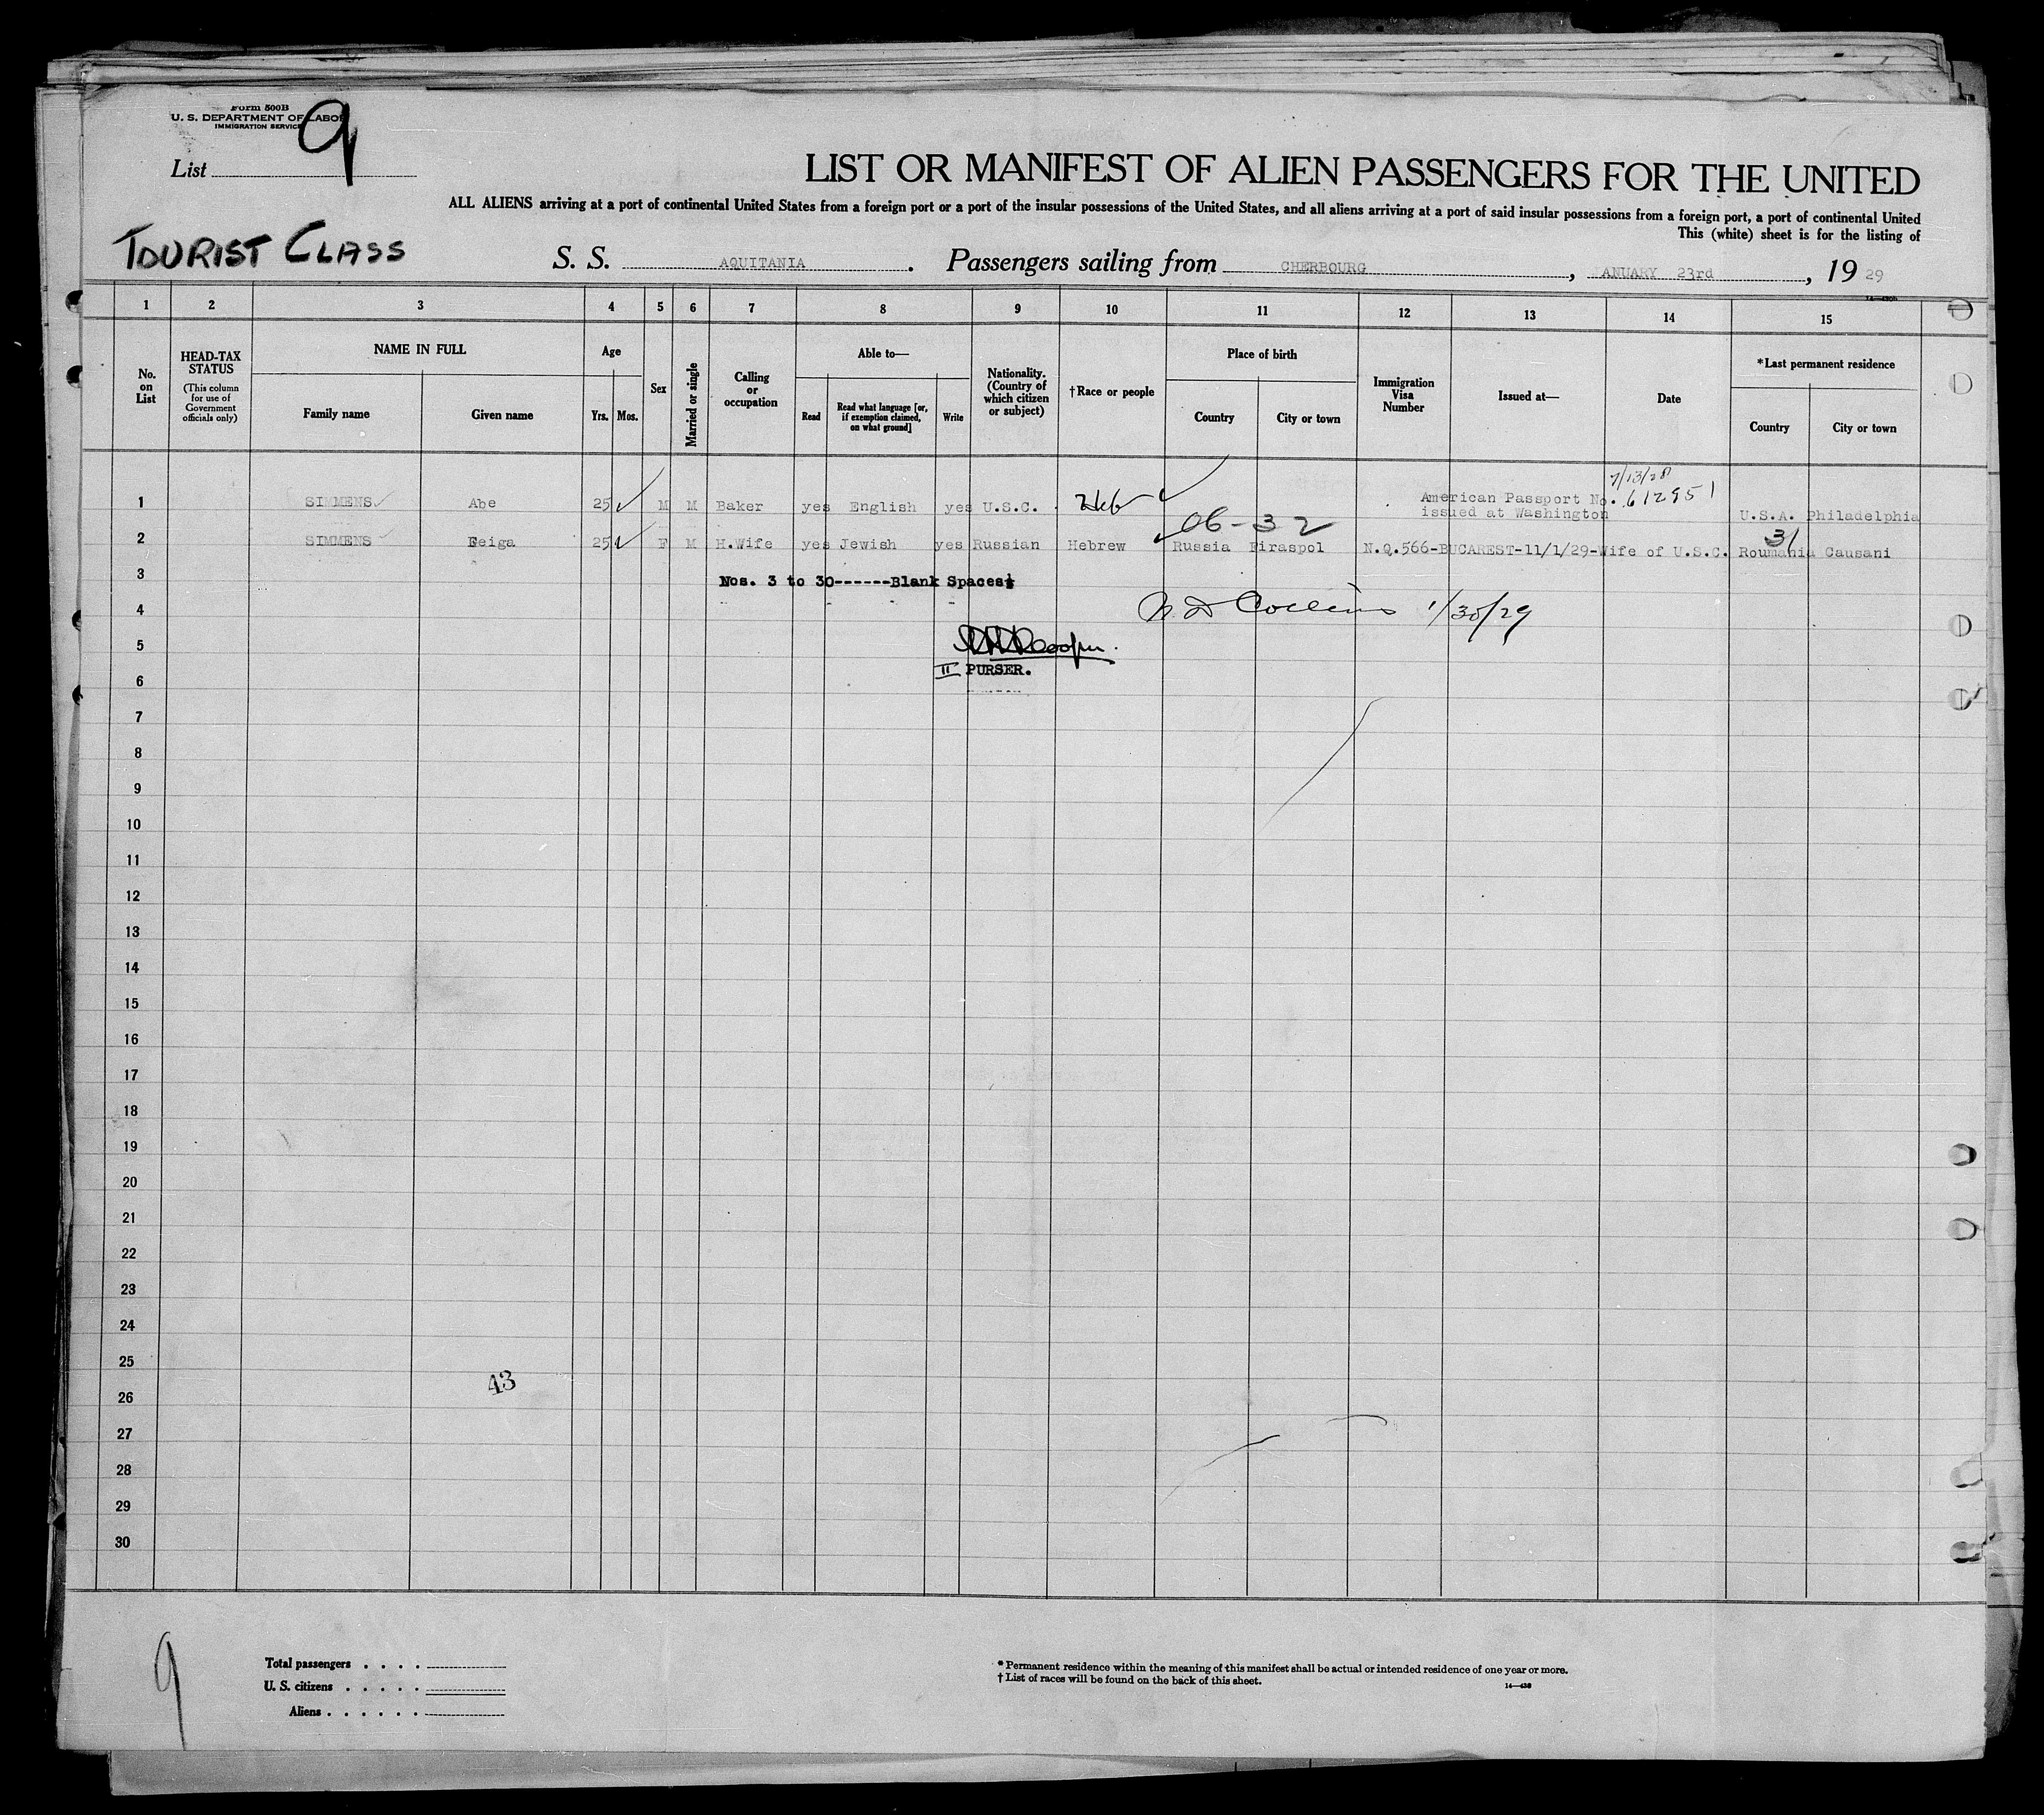 Form 500B
U. S. DEPARTMENT OF LABOR
IMMIGRATION SERVICE
List 9
LIST OR MANIFEST OF ALIEN PASSENGERS FOR THE UNITED
ALL ALIENS arriving at a port of continental United States from a foreign port or a port of the insular possessions of the United States, and all aliens arriving at a port of said insular possessions from a foreign port, a port of continental United
This (white) sheet is for the listing of
TOURIST CLASS
S. S. AQUITANIA. Passengers sailing from CHERBOURG, JANUARY 23rd, 1929
1 2 3 4 5 6 7 8 9 10 11 12 13 14 15
No. on List
HEAD-TAX STATUS
(This column for use of Government officials only)
NAME IN FULL
Family name
Given name
Age
Yrs. Mos.
Sex
Married or single
Calling or occupation
Able to—
Read
Read what language [or, if exemption claimed, on what ground]
Write
Nationality. (Country of which citizen or subject)
†Race or people
Place of birth
Country
City or town
Immigration Visa Number
Issued at—
Date
*Last permanent residence
Country
City or town
7/13/28
1 SIMMENS Abe 25 M M Baker yes English yes U.S.C. Heb American Passport No. 612951
issued at Washington U.S.A. Philadelphia
06-32
31
2 SIMMENS Feiga 25 F M H.Wife yes Jewish yes Russian Hebrew Russia Tiraspol N.Q.566-BUCAREST-11/1/29-Wife of U.S.C. Roumania Causani
3 Nos. 3 to 30------Blank Spaces
4 Collins 1/30/29
5
II PURSER.
6
7
8
9
10
11
12
13
14
15
16
17
18
19
20
21
22
23
24
25
43
26
27
28
29
30
9
Total passengers . . . .
U. S. citizens . . . . .
Aliens . . . . . .
* Permanent residence within the meaning of this manifest shall be actual or intended residence of one year or more.
† List of races will be found on the back of this sheet.
14—438